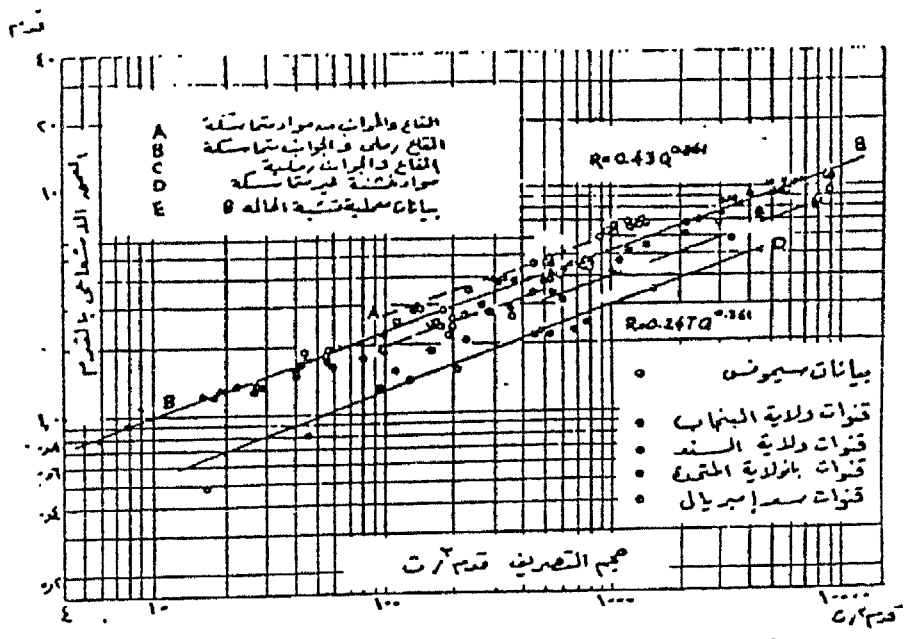 قدم
٤٠
٢٠
١٠
١٫٠
٠٫٨
٠٫٦
٠٫٤
٠٫٢
العمق الاشعاعى بالقدم
A القاع والجوانب من مواد متماسكة
B القاع رملى والجوانب متماسكة
C القاع والجوانب رملية
D مواد خشنة غير متماسكة
E بيانات سملية تشبة الحاله B
R=0.43Q^0.361
R=0.247Q^0.361
A
B
B
D
بيانات سيمونس
قنوات ولاية البنجاب
قنوات ولاية السند
قنوات بالولاية المتحدة
قنوات سعد إمبريال
حجم التصريف قدم٣/ث
٤
١٠
١٠٠
١٠٠٠
١٠٠٠٠
قدم٣/ث